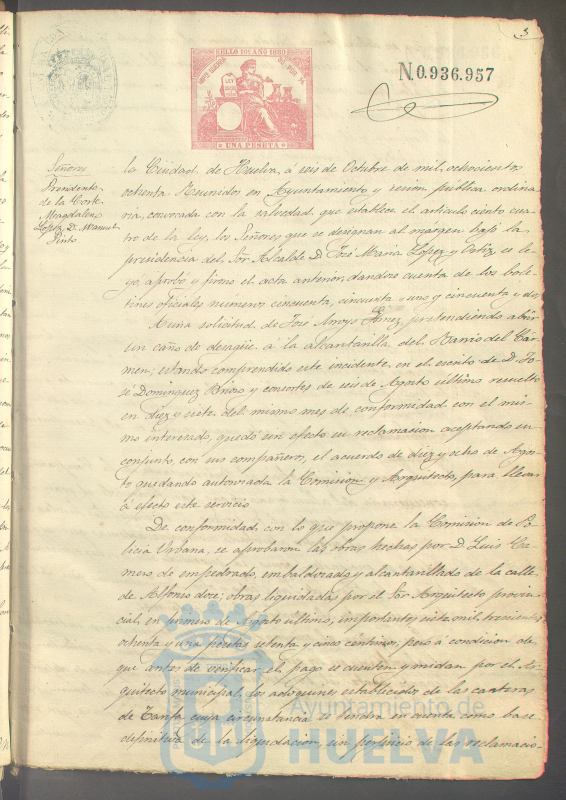 3
SELLO 10º AÑO 1880
UNA PESETA
N.0.936.957
Señores
Presidente
de la Corte
Magdalena
Lopez D. Manuel
Pinto
la Ciudad de Huelva, á seis de Octubre de mil ochocientos
ochenta Reunidos en Ayuntamiento y sesion publica ordina
ria, convocada con la salvedad que establece el articulo ciento cua
tro de la ley, los Señores que se designan al margen bajo la
presidencia del Sor Alcalde D. José Maria Lopez y Ortiz, se le
yó, aprobó y firmó el acta anterior, dandose cuenta de los bole
tines oficiales numeros cincuenta, cincuenta y uno y cincuenta y dos
A una solicitud de José Arroyo pretendiendo abrir
un caño de desagüe á la alcantarilla del Barrio del Cár
men; estando comprendido este incidente en el escrito de D. Jo
sé Dominguez y consortes de seis de Agosto último resuelto
en diez y siete del mismo mes de conformidad con el mis
mo interesado, quedó sin efecto su reclamacion aceptando en
conjunto con sus compañeros, el acuerdo de diez y ocho de Agos
to quedando autorizada la Comision y Arquitecto, para llevar
á efecto este servicio
De conformidad con lo que propone la Comision de Po
licia Urbana, se aprobaron las obras hechas por D. Luis Ga
mero de empedrado, embaldosado y alcantarillado de la calle
de Alfonso doce; obras liquidadas por el Sor Arquitecto provin
cial, en primero de Agosto último, importantes siete mil trescientas
ochenta y una pesetas setenta y cinco céntimos, pero á condicion de
que antes de verificar el pago se cuenten y midan por el Ar
quitecto municipal, los adoquines establecidos de las canteras
de cuya circunstancia se tendrá en cuenta como base
definitiva de la liquidacion, sin perjuicio de las reclamacio-
Ayuntamiento de
HUELVA